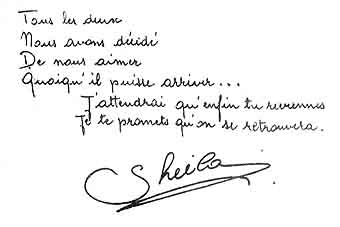 Tous les deux
Nous avons décidé
De nous aimer
Quoiqu'il puisse arriver...
J'attendrai qu'enfin tu reviennes
Je te promets qu'on se retrouvera.
Sheila